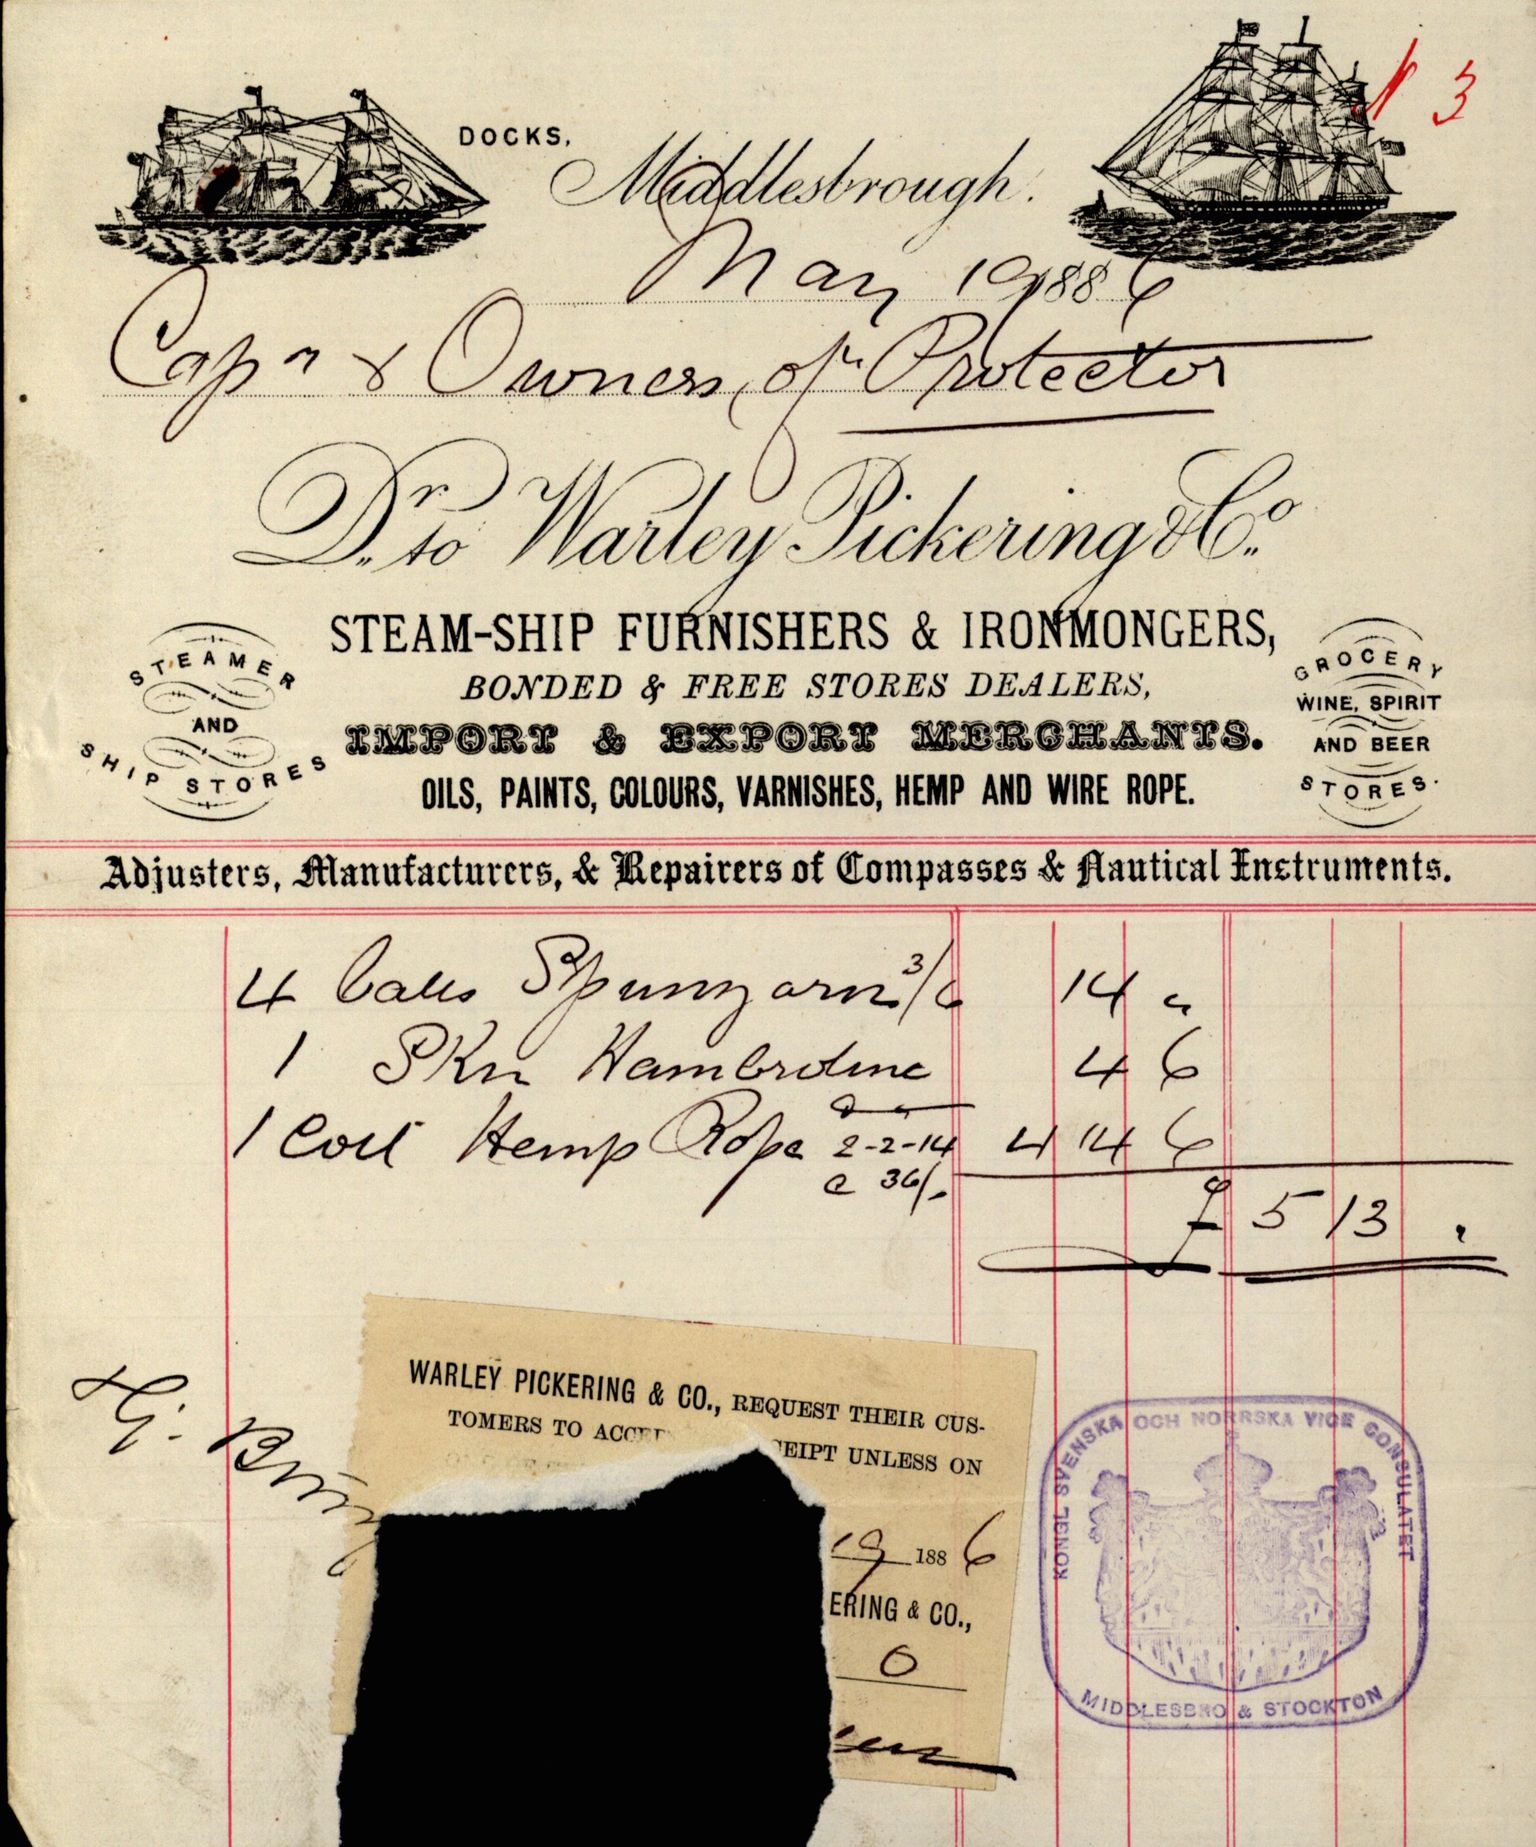 N 3
DOCKS,
Middlesbrough.
May 19 1886
Capn & Owners, of Protector
Dr. to Warley Pickering & Co.
STEAM-SHIP FURNISHERS & IRONMONGERS,
BONDED & FREE STORES DEALERS,
IMPORT & EXPORT MERCHANTS.
OILS, PAINTS, COLOURS, VARNISHES, HEMP AND WIRE ROPE.
STEAMER
AND
SHIP STORES
GROCERY
WINE, SPIRIT
AND BEER
STORES.
Adjusters, Manufacturers, & Repairers of Compasses & Nautical Instruments.
4 Spunyarn 3/6 14 "
1 Skn Hambroline 4 6
1 Coil Hemp Rope 2-2-14 4 14 6
@ 36/-
£ 5 13 "
WARLEY PICKERING & CO., REQUEST THEIR CUS-
TOMERS TO ACCEP CEIPT UNLESS ON
19 1886
ERING & CO.,
0
KONGL SVENSKA OCH NORRSKA VICE CONSULATET
MIDDLESBRO & STOCKTON